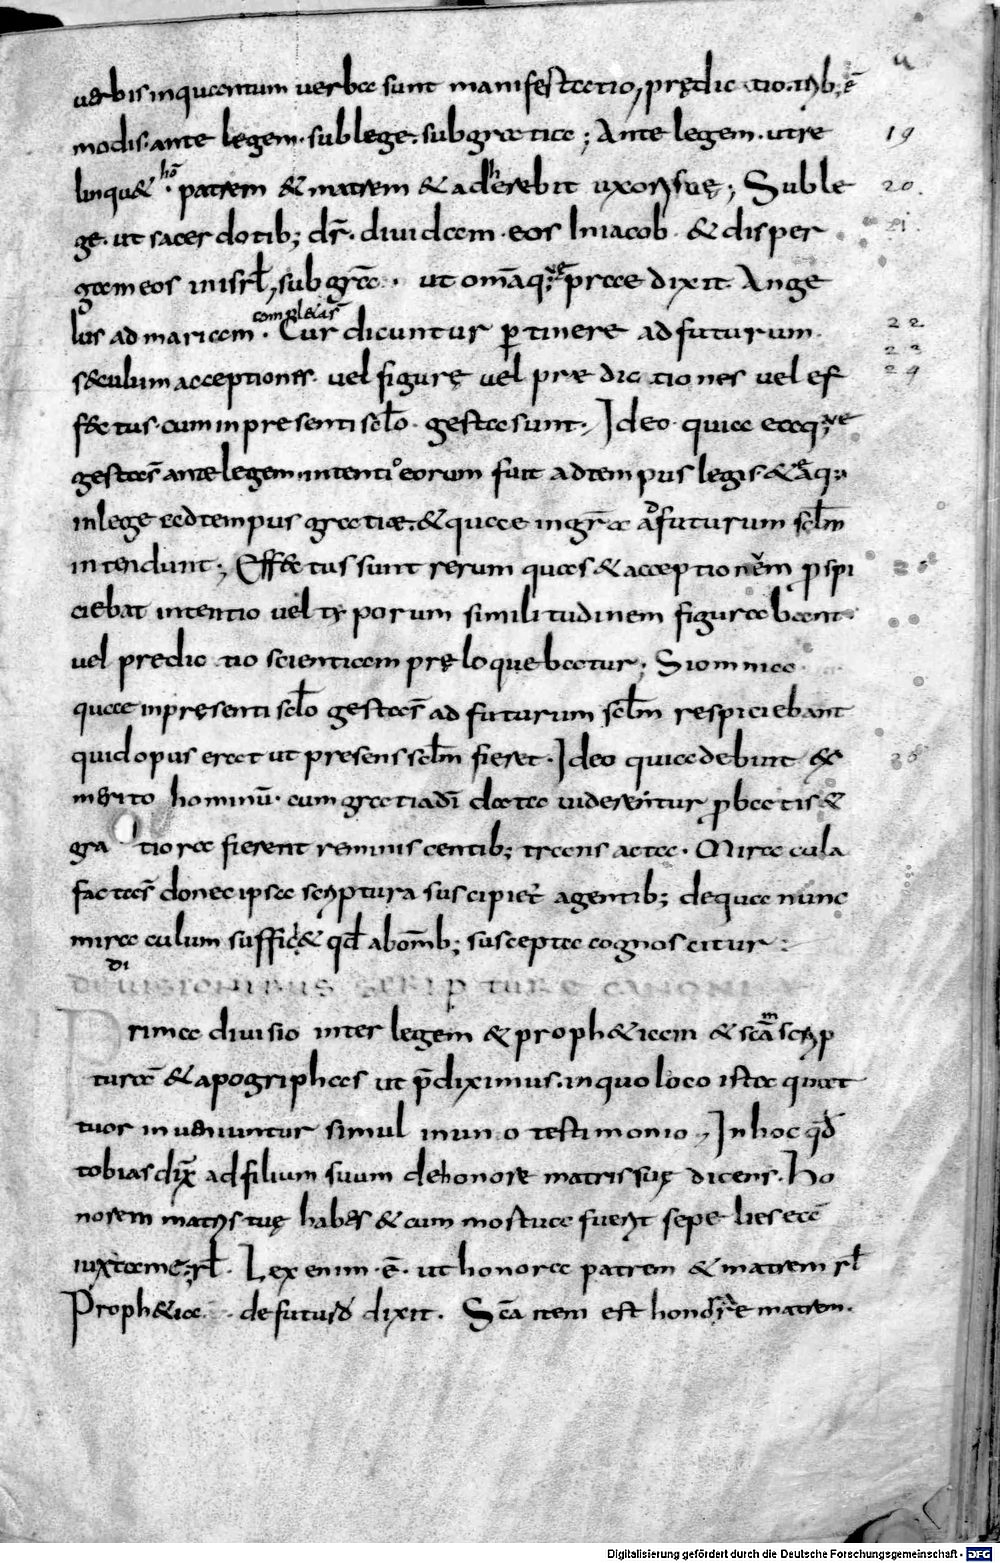 uerbis inquantum uerba sunt manifestatio, prędicatio. trib; ē
modis. ante legem. sub lege. sub gratia; Ante legem. ut re
linqu& hō patrem & matrem & adherebit uxori suę; Sub le
ge. ut sacerdotib; dr̄. diuidam eos in iacob & disper
gam eos in isrł, sub grā. ut omāq; ue prae dixit Ange
lus ad mariam. completis Cur dicuntur ꝑtinere ad futurum
sęculum acceptiones. uel figurę uel prędicationes uel ef
f&tus. cum in presenti scło gesta sunt. Ideo quia eaq; ue
gesta s̄ ante legem intentio eorum fuit ad tempus legis. & eaq;
in lege ad tempus gratiæ. & quae in grā ad futurum scłm
intendunt; Eff&tus sunt rerum quas & acceptionem prospi
ciebat intentio uel typorum similitudinem figurabant
uel predicatio scientiam prę loquebatur; Si omnia
quae in pręsenti scło gesta s̄ ad futurum scłm respiciebant
quid opus erat ut presens scłm fieret. Ideo quia debuit &
merito hominū. cum gratia dī data uiderentur probatis &
gratiora fierent reminiscentib; transacta. Miracula
facta s̄ donec ipsa scriptura susciperet̄ a gentib; de qua nunc
miraculum suffic& qđ ab omīb; suscepta cognoscitur:
de diuisionibus scripturę canonica
Prima diuisio inter legem & proph&iam & scām scrip
turā & apogriphas ut p̄diximus. in quo loco ista quat
tuor inueniuntur simul in uno testimonio, In hoc qđ
tobias dix̄ ad filium suum de honore matris suę dicens. Ho
norem matris tuę habes & cum mortua fuerit sepe lies eā
iuxta me; rł. Lex enim. ē. ut honora patrem & matrem rł
Proph&ia. de futuro dixit. Scā item est honorare matrem.
19
20.
21.
22
23
24
25
26
Digitalisierung gefördert durch die Deutsche Forschungsgemeinschaft - DFG